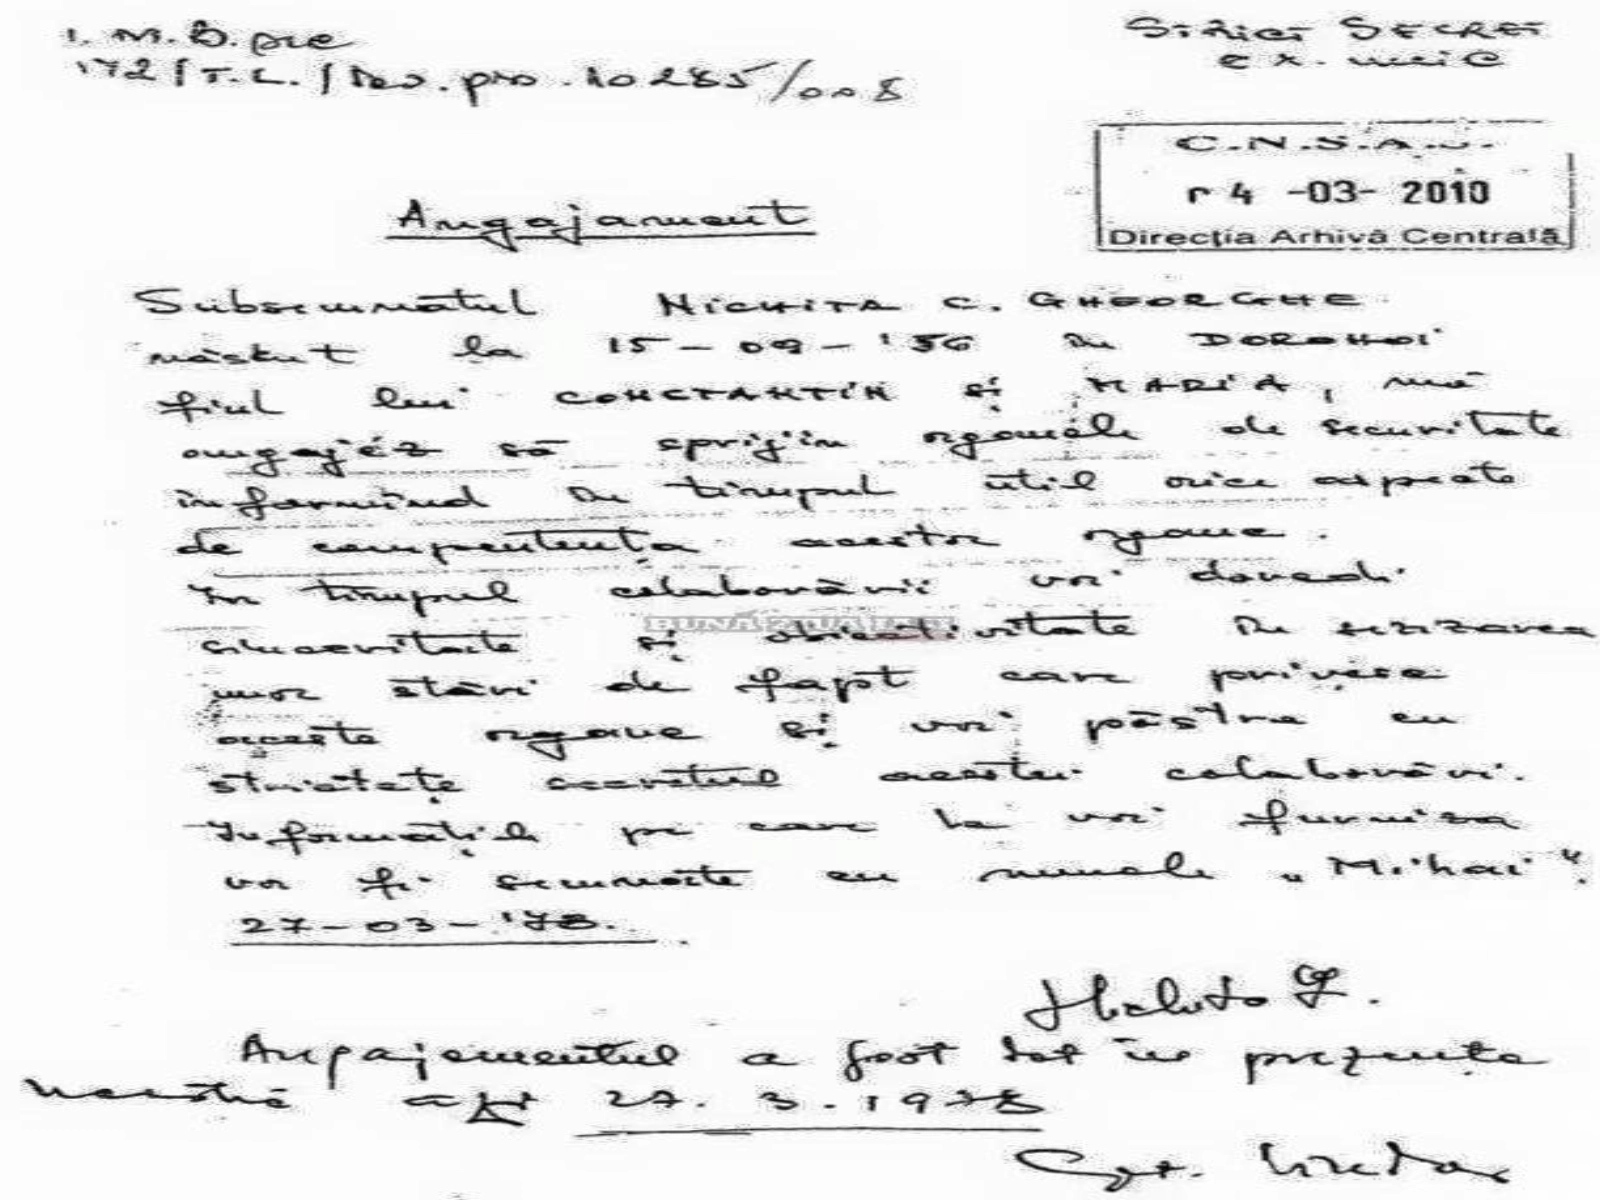 I.M.B. pre
172/T.L./ pro. 10285/008
STRICT SECRET
ex. unic
C.N.S.A.
r 4 -03- 2010
Direcția Arhivă Centrală
Angajament
Subsemnatul NICHITA C. GHEORGHE
născut la 15-09-'56 în DOROHOI
fiul lui CONSTANTIN și MARIA, mă
angajez să sprijin organele de securitate
informînd în timpul util orice aspecte
de compentența acestor organe.
În timpul colaborării voi dovedi
sinceritate și obiectivitate în sezizarea
unor stări de fapt care privesc
aceste organe și voi păstra cu
strictețe secretul acestei colaborări.
Informațiile pe care le voi furniza
vor fi semnate cu numele „Mihai".
27-03-'78.
BUNĂ ZIUA IAȘI
Angajamentul a fost dat în prezența
noastră azi 27. 3. 1978